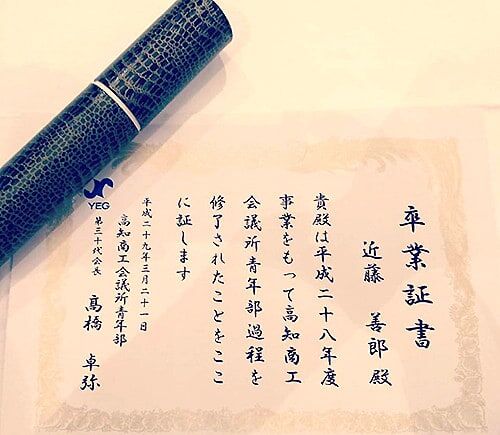 卒業証書
近藤 善郎 殿
貴殿は平成二十八年度
事業をもって高知商工
会議所青年部過程を
修了されたことをここ
に証します
平成二十九年三月二十一日
高知商工会議所青年部
第三十代会長 髙橋 卓弥
YEG